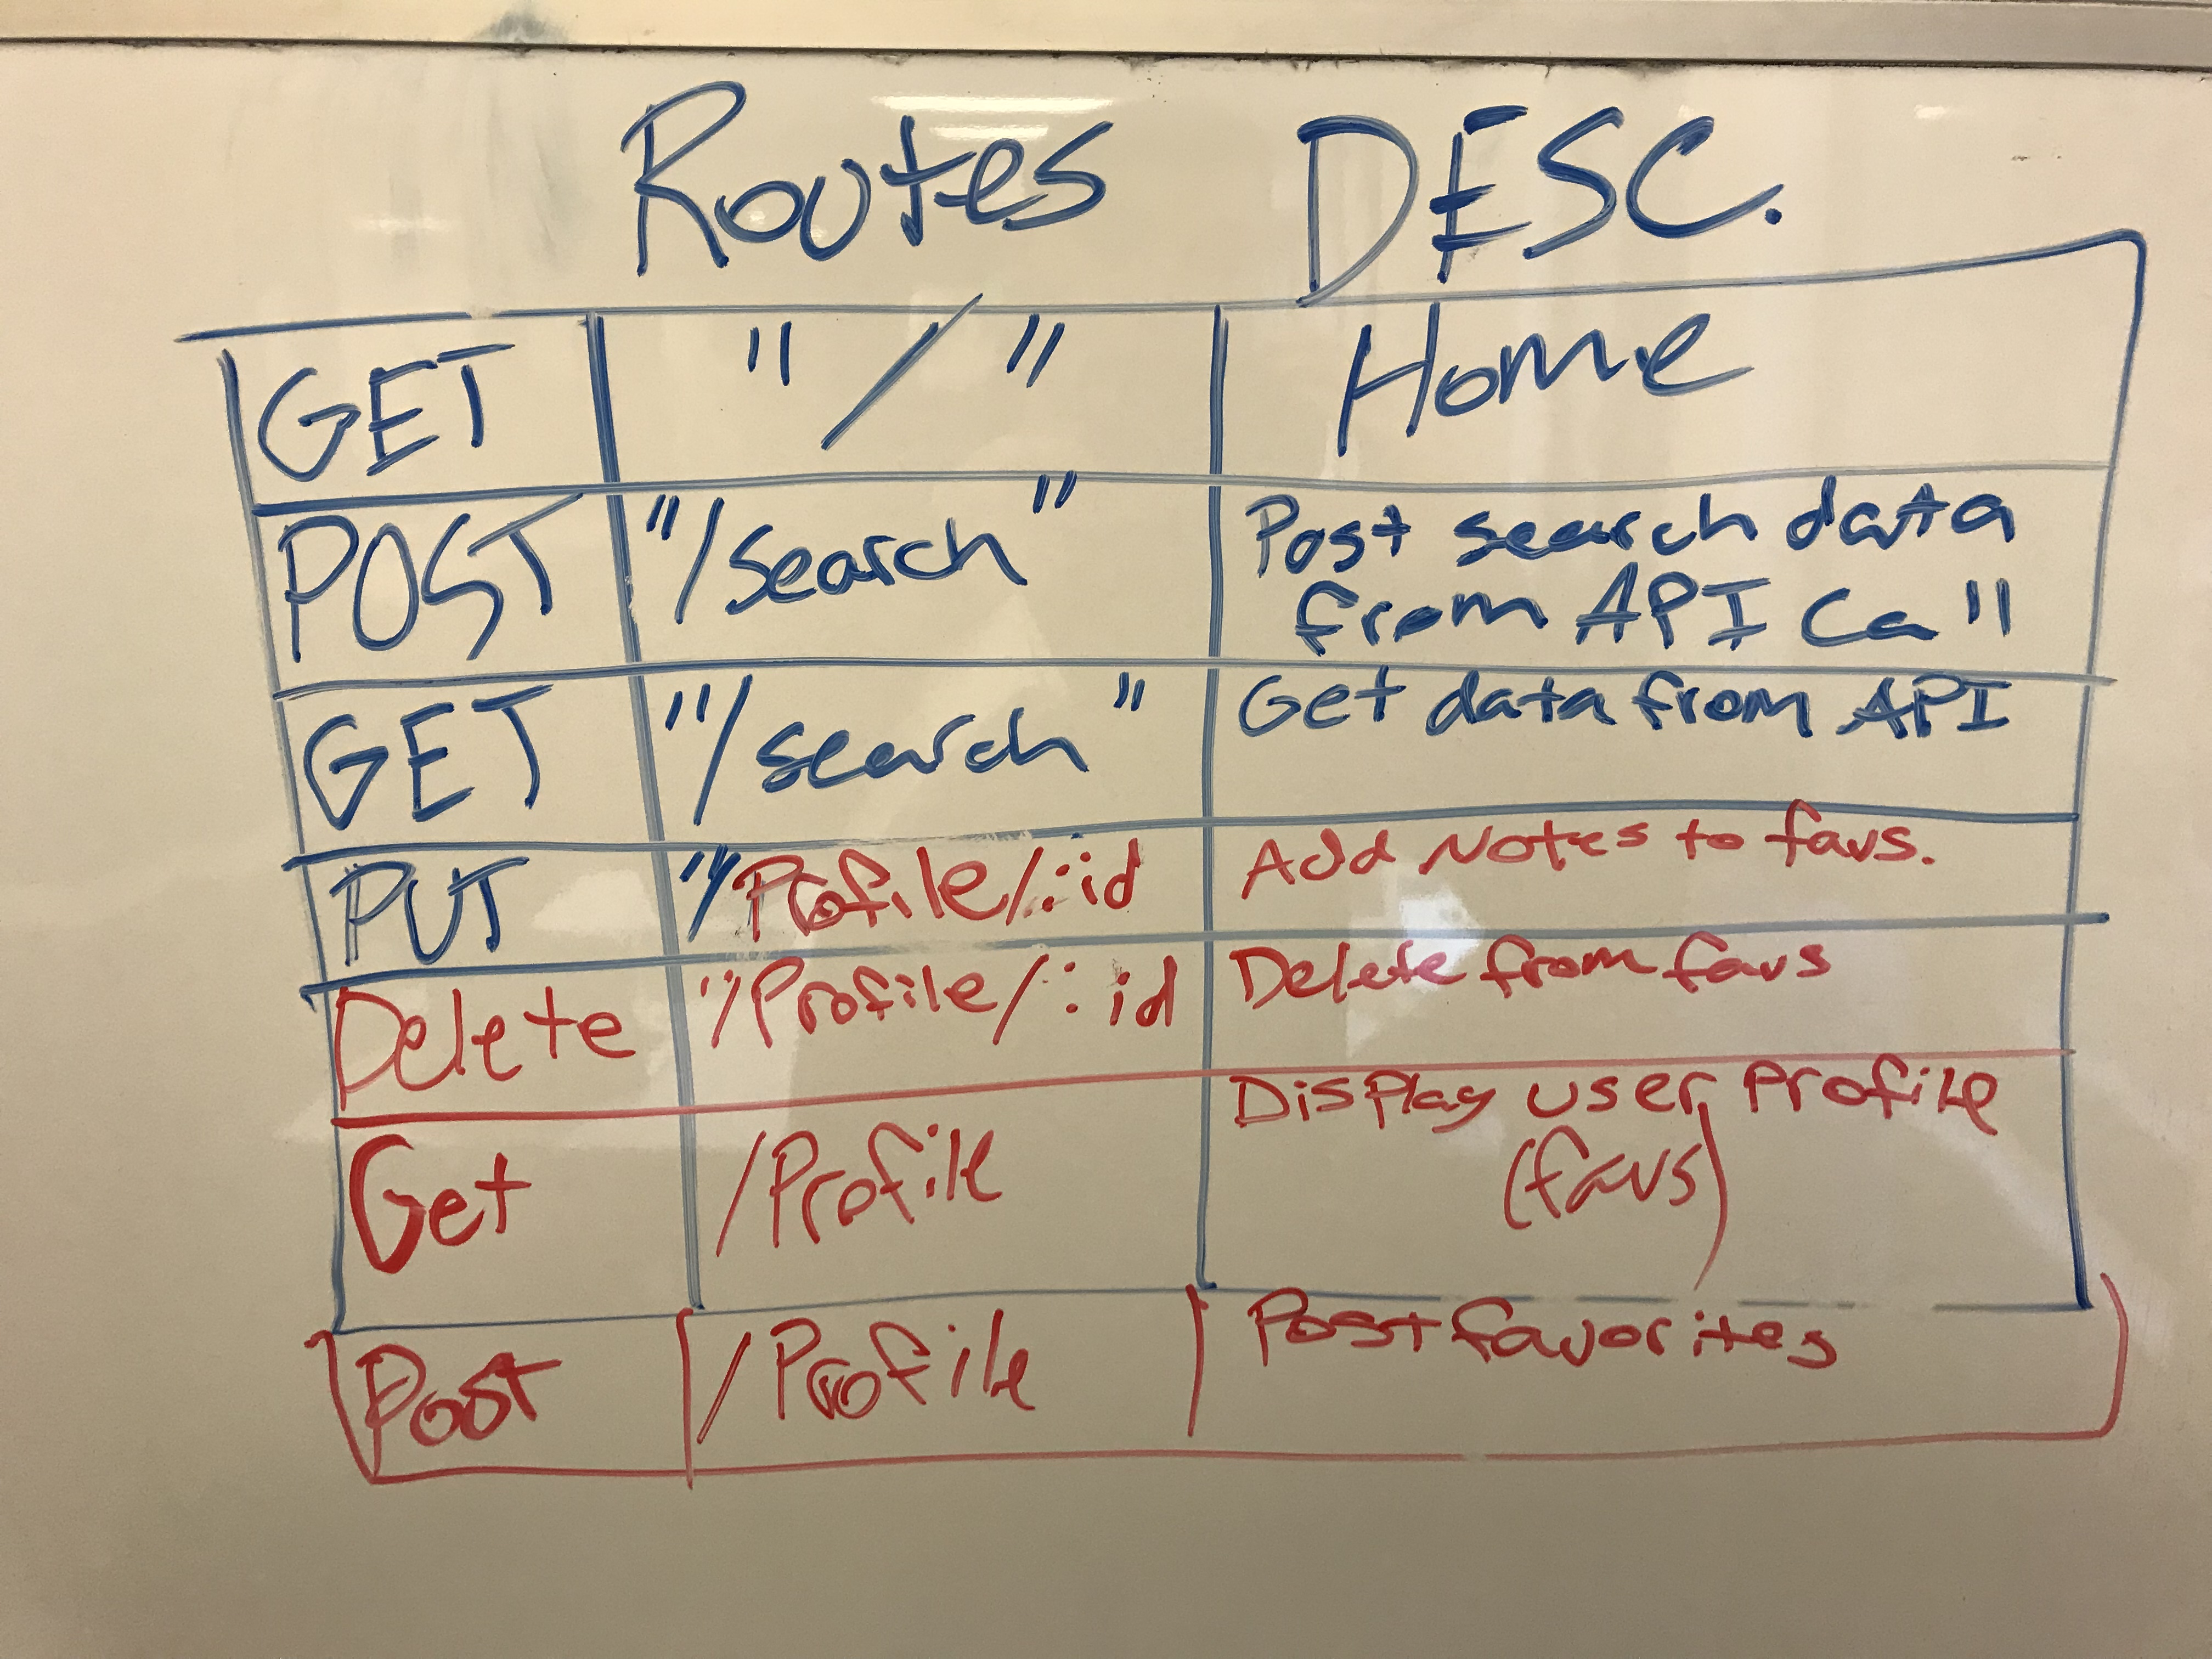 Routes DESC.
GET "/" Home
POST "/search" Post search data
from API Call
GET "/search" Get data from API
PUT "/Profile/:id Add Notes to favs.
Delete "/Profile/:id Delete from favs
Get /Profile Display user Profile
(favs)
Post /Profile Post favorites